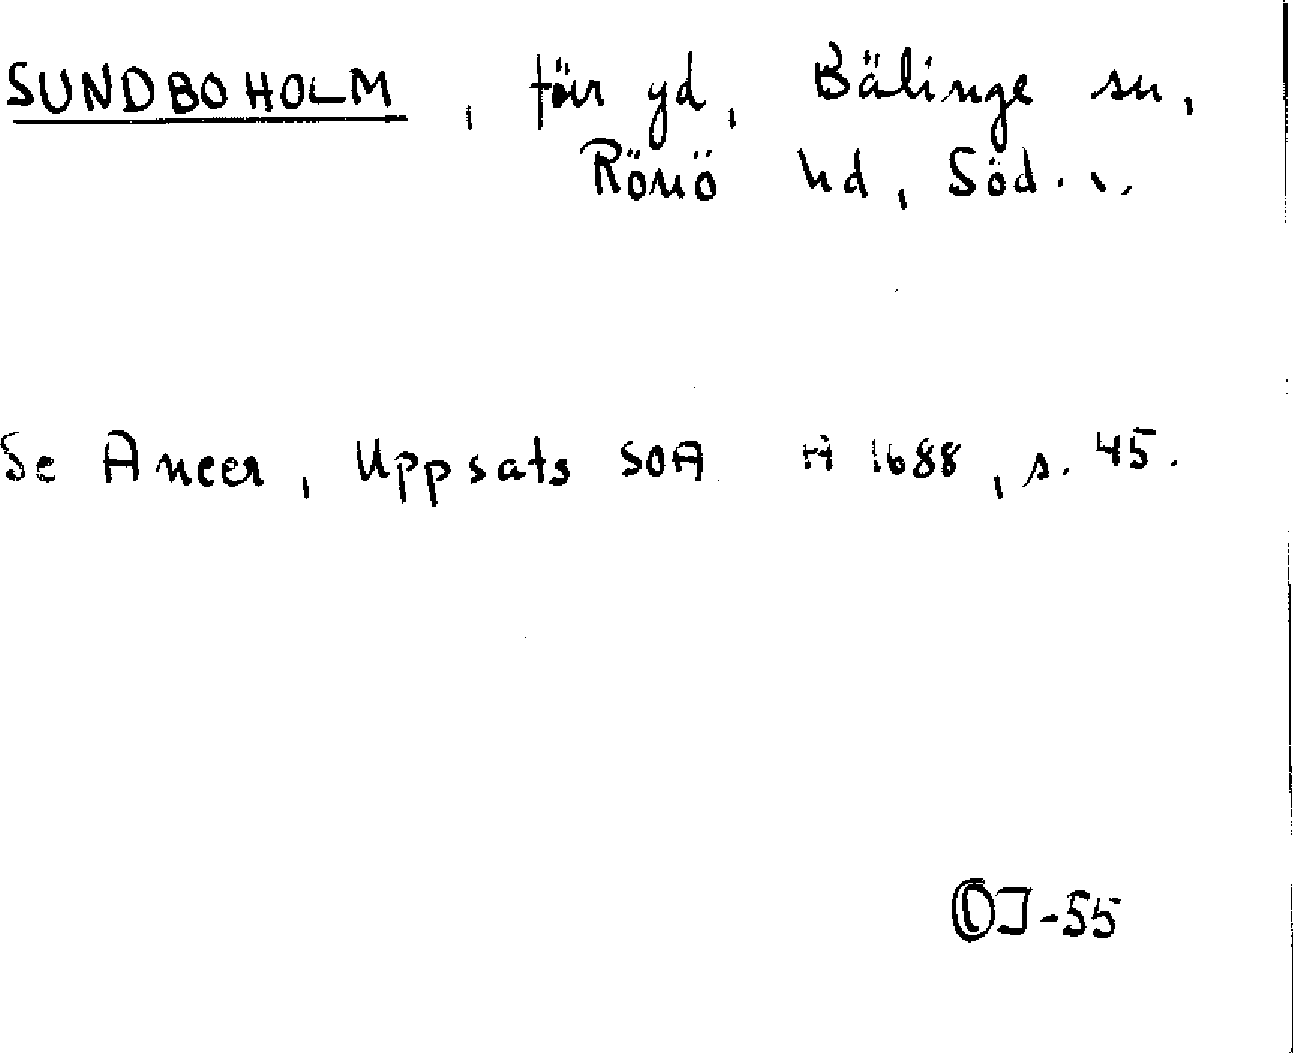 SUNDBOHOLM, förr yd, Bälinge sn,
Rönö hd, Söd.
Se Aneer, Uppsats SOA A 1688, s. 45.
OJ-55